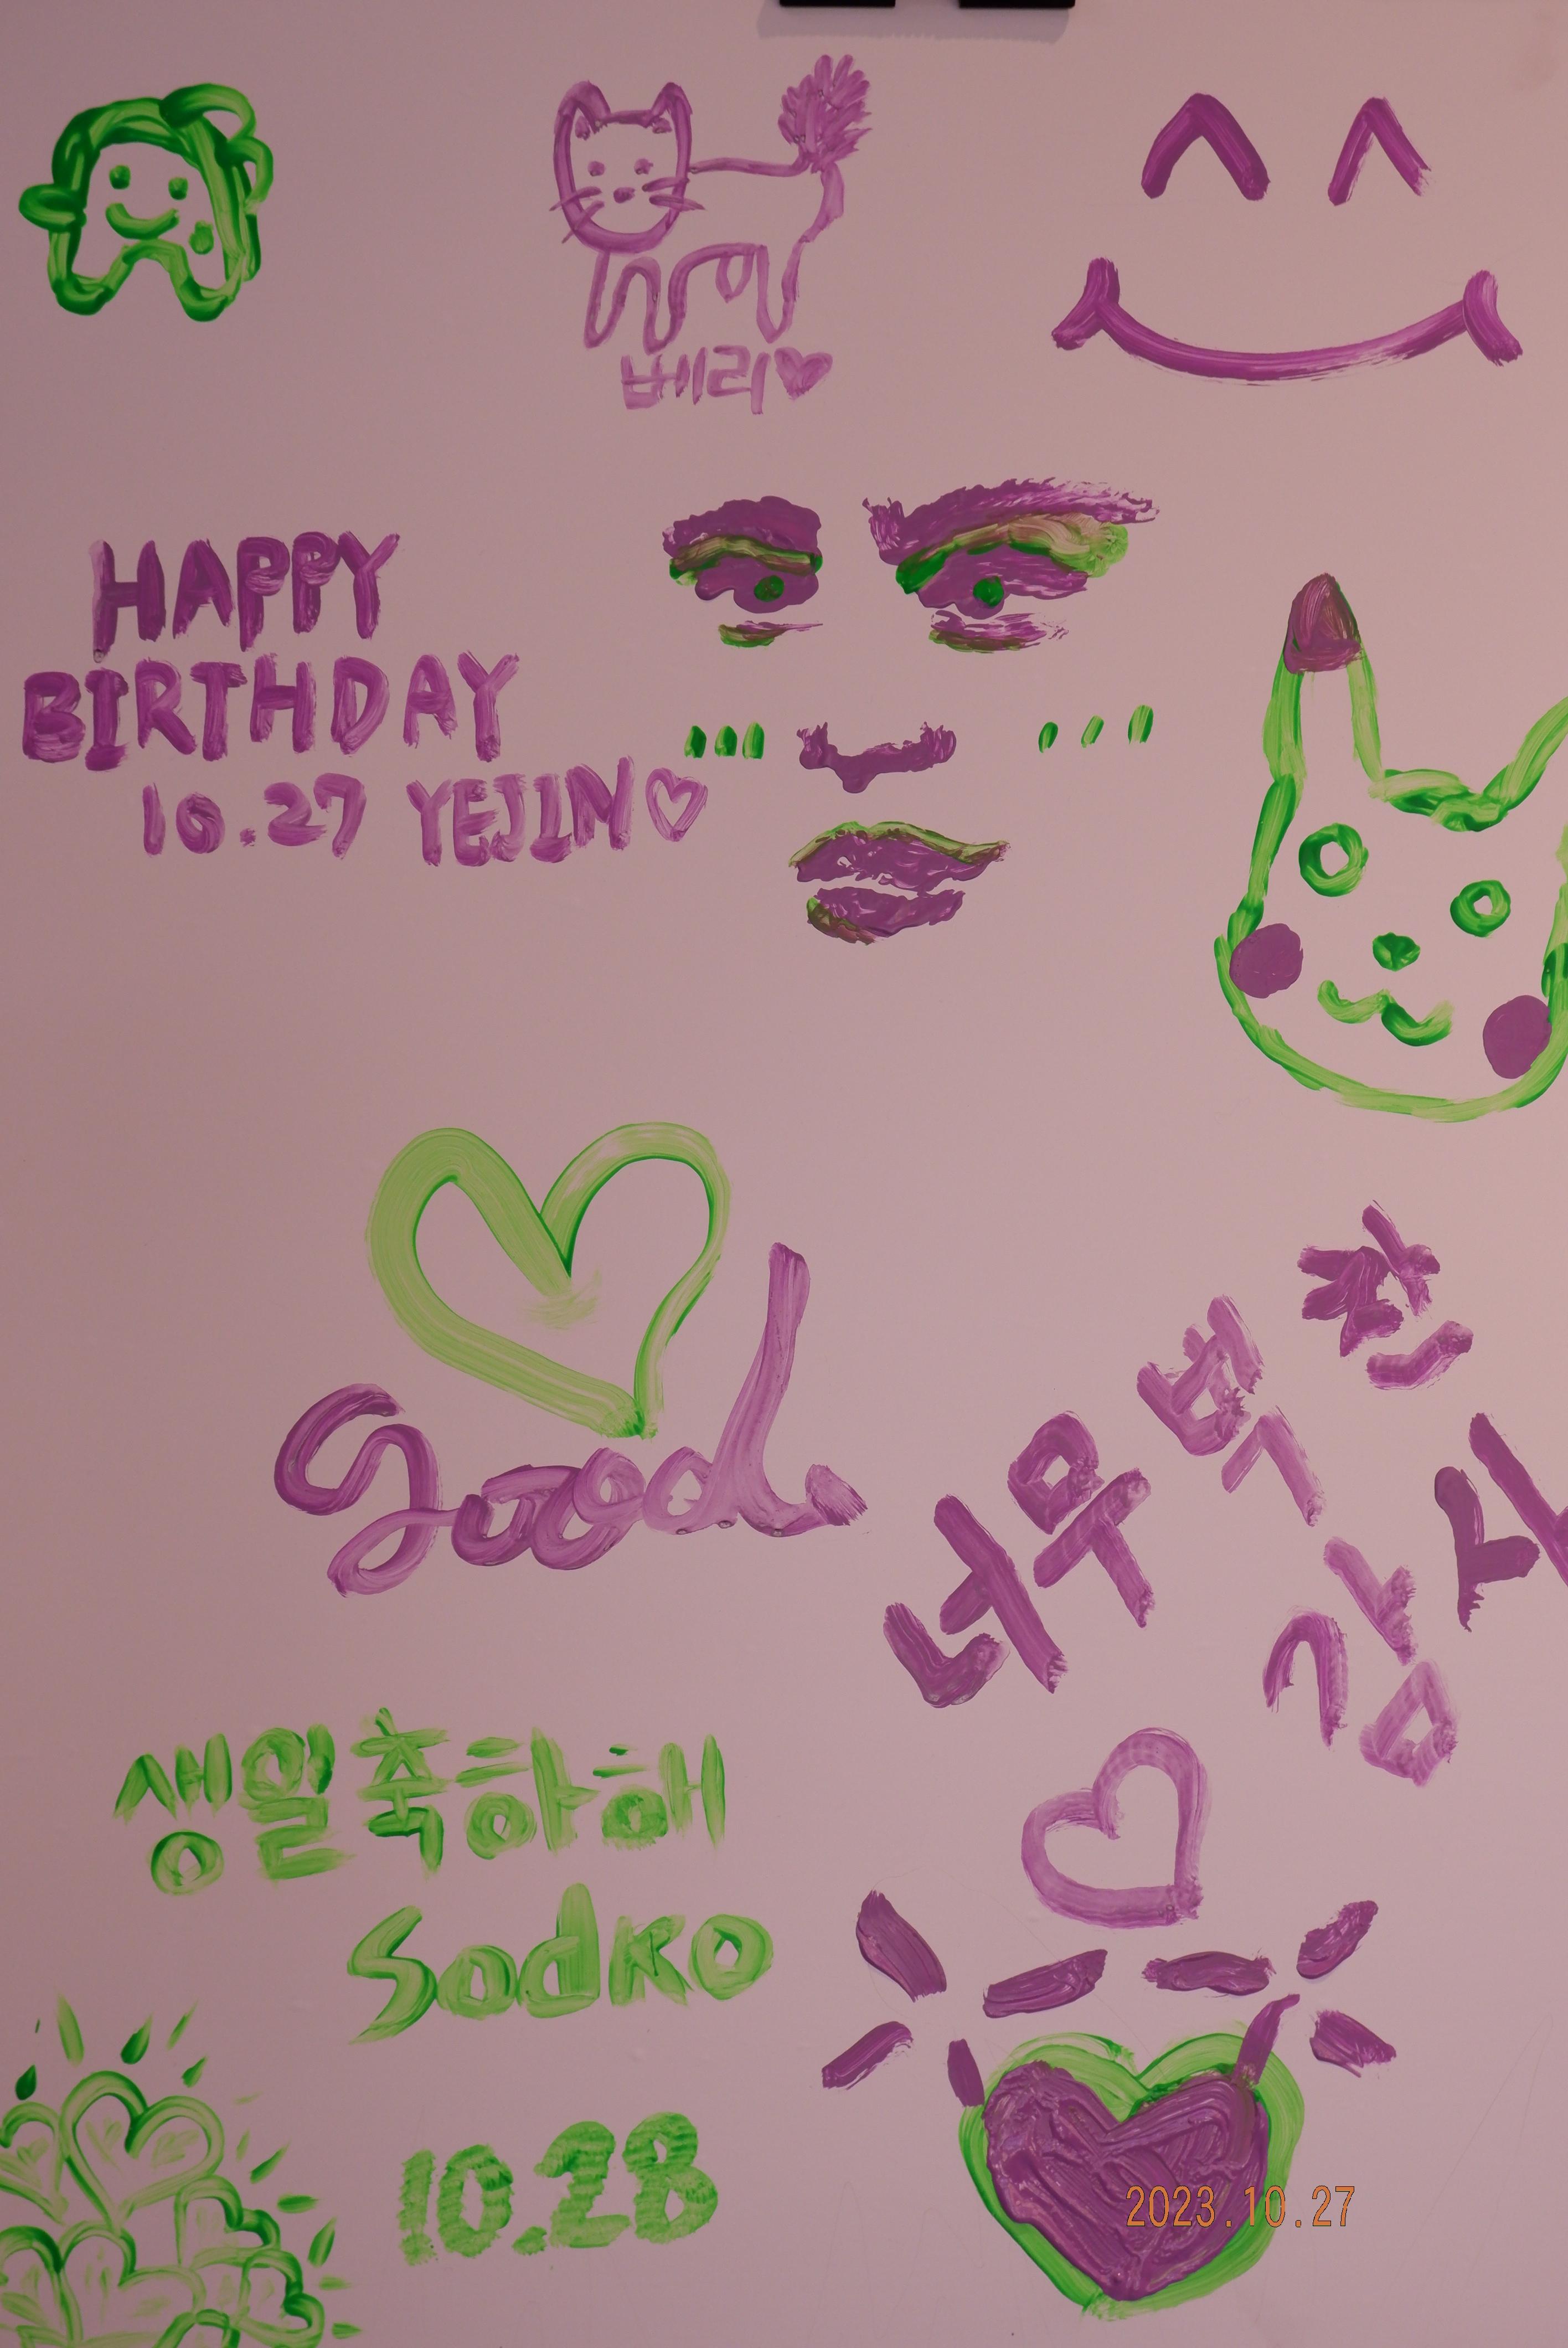 베리♡
HAPPY
BIRTHDAY
10.27 YEJIN♡
good
너무 벅찬
감사
생일축하해
Sodko
10.28
2023.10.27